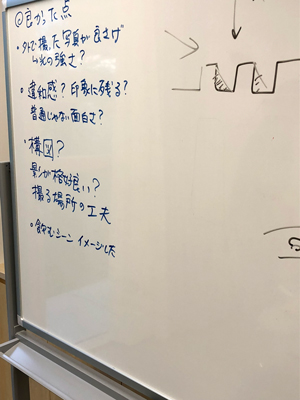 ◎良かった点
・外で撮った写真が良さげ
の強さ?
・違和感? 印象に残る?
普通じゃない面白さ?
・構図?
影が格好良い?
撮る場所の工夫
・飲むシーン イメージした